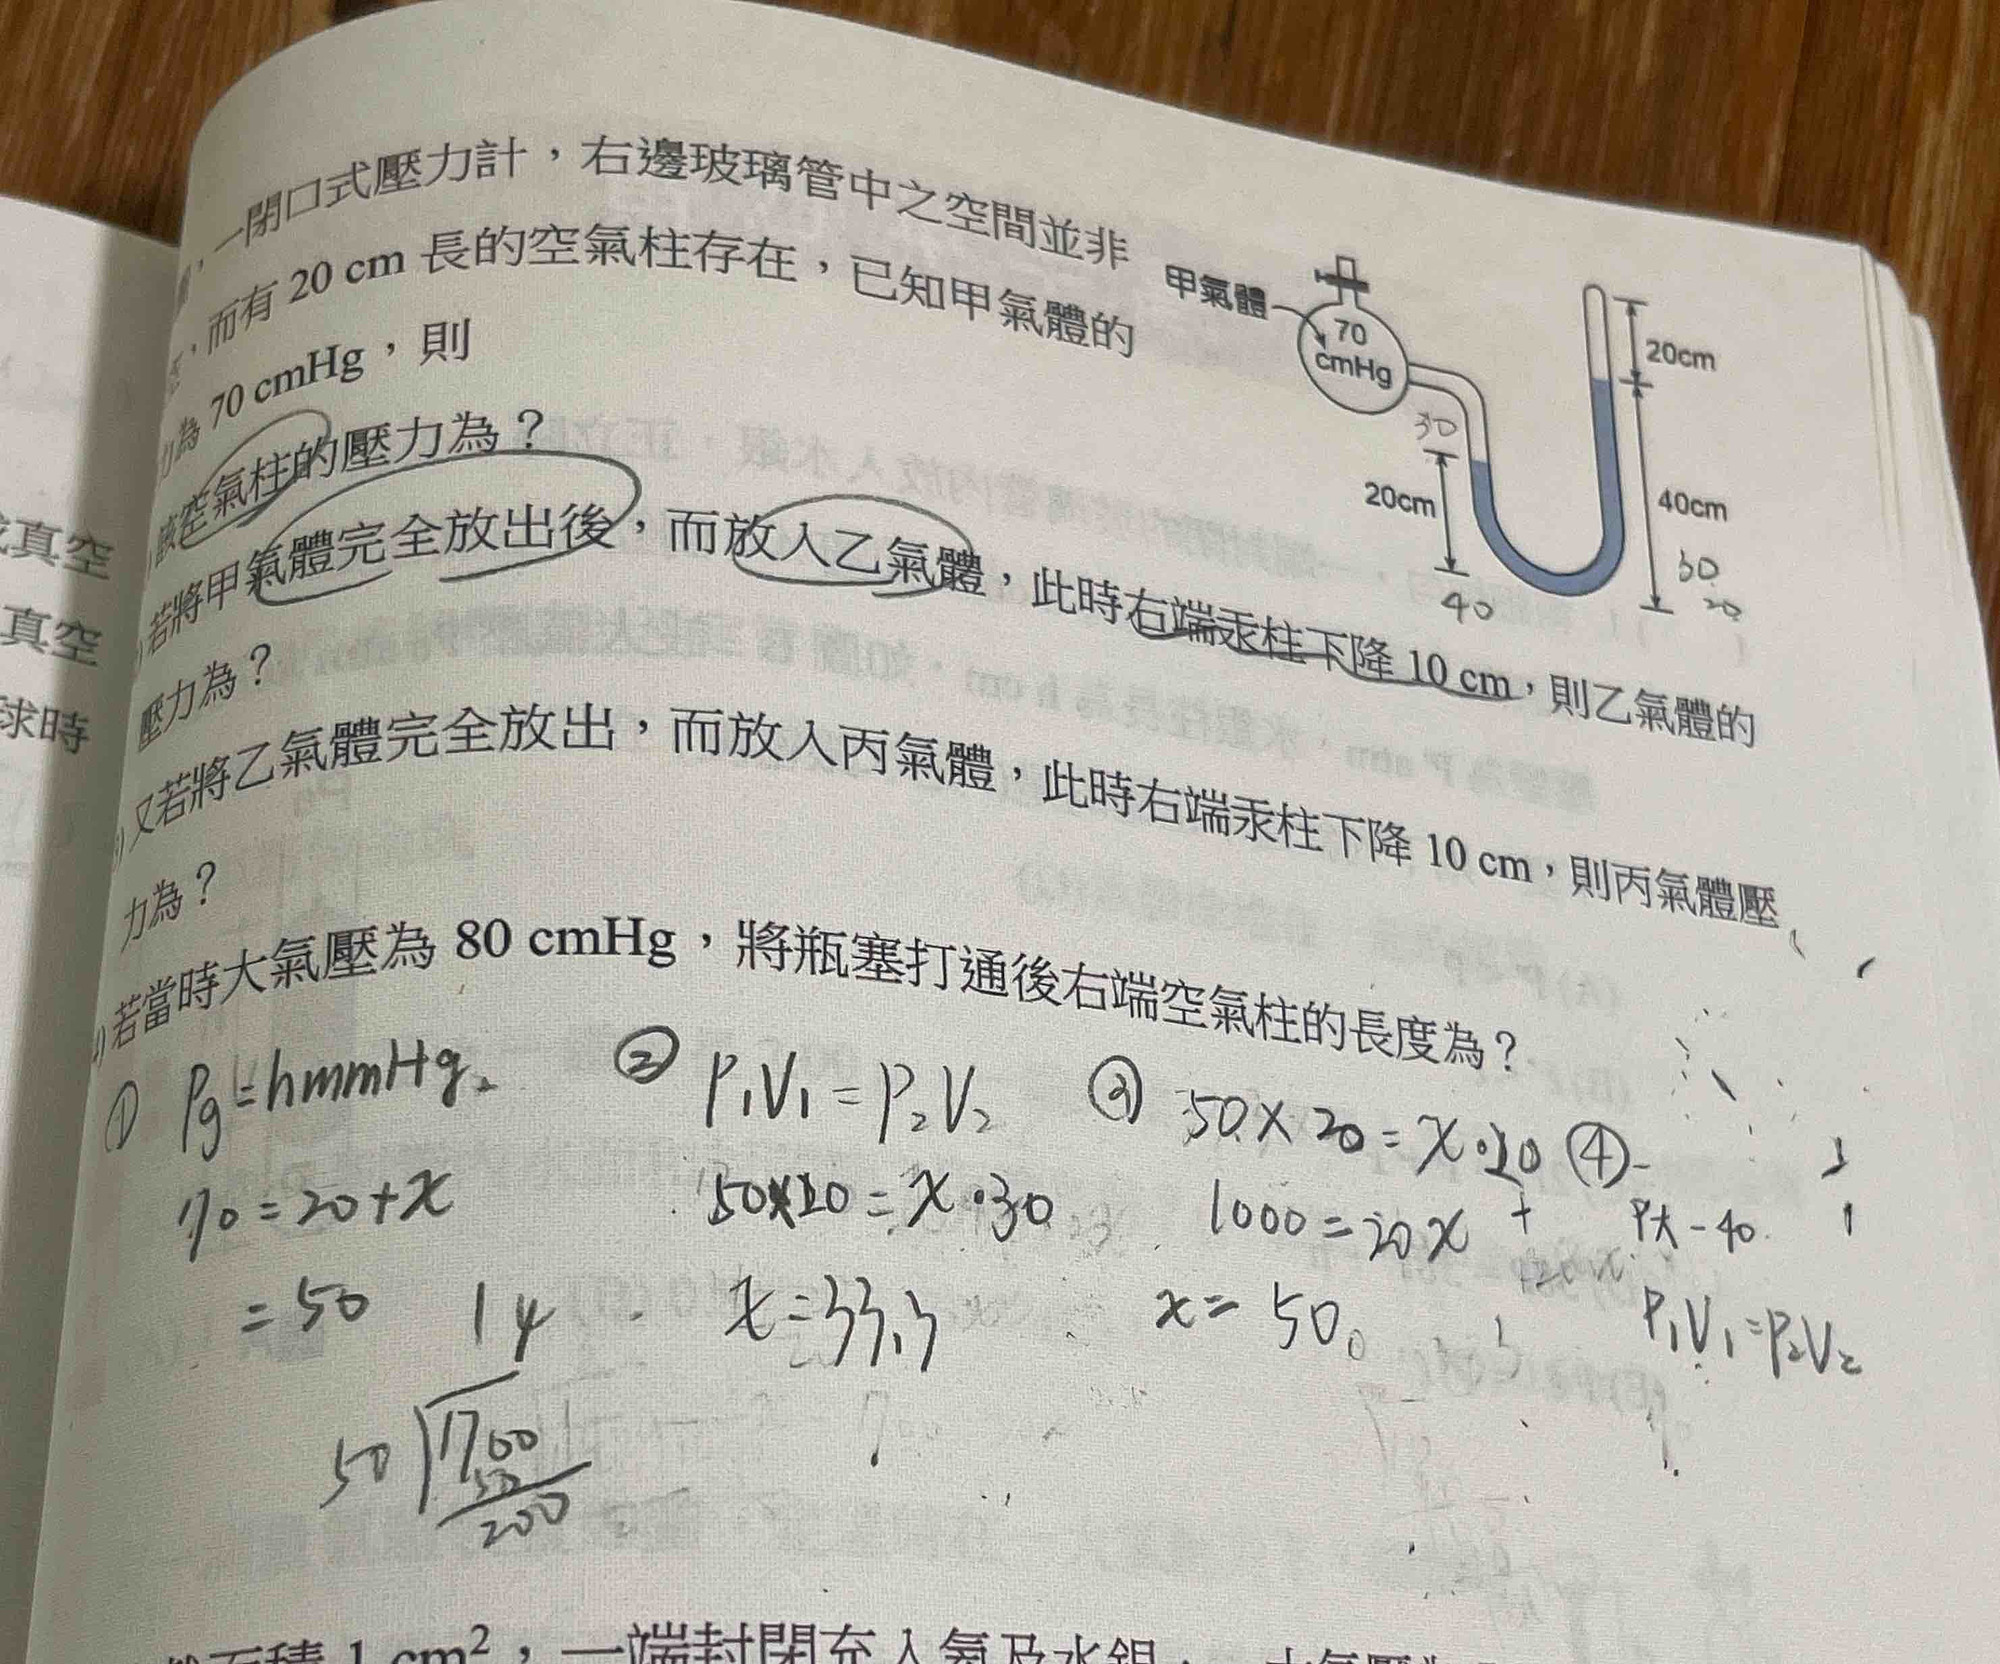 ，一閉口式壓力計，右邊玻璃管中之空間並非
，而有 20 cm 長的空氣柱存在，已知甲氣體的
為 70 cmHg，則
該空氣柱的壓力為？
若將甲氣體完全放出後，而放入乙氣體，此時右端汞柱下降 10 cm，則乙氣體的
壓力為？
又若將乙氣體完全放出，而放入丙氣體，此時右端汞柱下降 10 cm，則丙氣體壓
力為？
若當時大氣壓為 80 cmHg，將瓶塞打通後右端空氣柱的長度為？
甲氣體
70
cmHg
20cm
30
20cm
40cm
40
30
20
① Pg = hmmHg
70 = 20 + x
= 50
② P₁V₁ = P₂V₂
50×20 = x·30
x = 33.3
③ 50×20 = x·20
1000 = 20x
x = 50
④
P大 - 40
P₁V₁ = P₂V₂
14
50
1700
50
200
真空
真空
球時
1 cm²，一端封閉充入氦及水銀